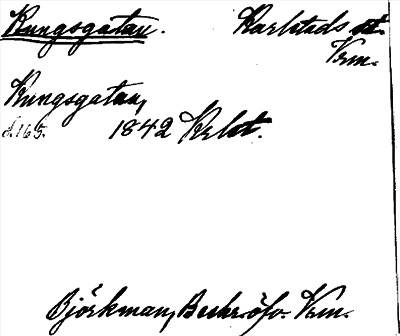 Kungsgatan. Karlstads st.
Vrm.
Kungsgatan,
s.165. 1842 Krlst.
Björkman, Beskr. öfv. Vrm.